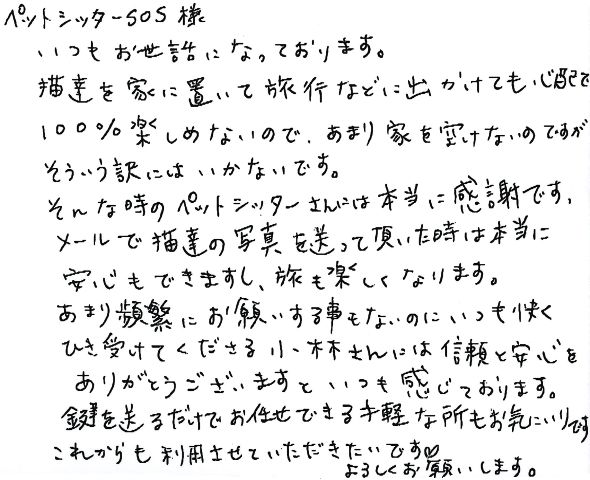 ペットシッターSOS 様
いつもお世話になっております。
猫達を家に置いて旅行などに出かけても心配で
100%楽しめないので、あまり家を空けないのですが
そういう訳にはいかないです。
そんな時のペットシッターさんには本当に感謝です。
メールで猫達の写真を送って頂いた時は本当に
安心もできますし、旅も楽しくなります。
あまり頻繁にお願いする事もないのにいつも快く
ひき受けてくださる小林さんには信頼と安心を
ありがとうございますといつも感じております。
鍵を送るだけでお任せできる手軽な所もお気にいりです
これからも利用させていただきたいです♡
よろしくお願いします。